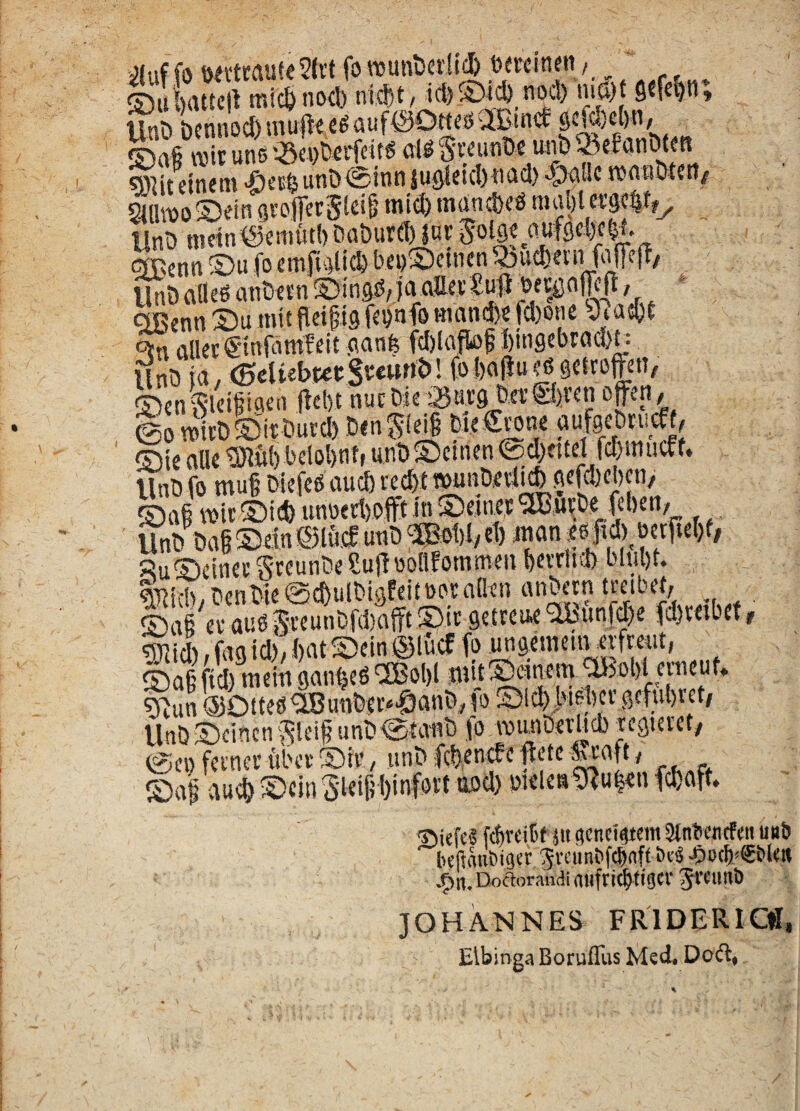 Auf so vertraute Art so wunderlich vereinen /
Du hattest mich noch nicht / ich Dich noch nicht gesehn;
Und dennoch muste es auf GOttes Winck geschehn /
Daß wir uns Beyderseits als Freunde und Bekandten
Mit einem Hertz und Sinn zugleich nach Halle wandten /
Allwo Dein grosser Fleiß mich manches mahl ergetzt /
Und mein Gemüth dadurch zur Folge aufgehetzt.
Wenn Du so emsiglich bey Deinen Büchern sassest /
Und alles andern Dings / ja aller Lust vergassest /
Wenn Du mit fleißig seyn so manche schöne Nacht
In aller Einsamkeit gantz schlafloß hingebracht:
Und ja, Geliebter Freund! so hast u es getroffen /
Den Fleißigen steht nur die Burg der Ehren offen /
So wird Dir durch den Fleiß die Crone aufgedruckt /
Die alle Müh belohnt / und Deinen Scheitel schmückt.
Und so muß dieses auch recht wunderlich geschehen /
Daß wir Dich unverhofft in Deiner Würde sehen /
Und daß Dein Glück und Wohl / eh man es sich versteht /
Zu Deiner Freunde Lust vollkommen herrlich blüht.
Mich / den die Schuldigkeit vor allen andern treibet /
Daß er aus Freundschafft Dir getreue Wünsche schreibet /
Mich / sag ich / hat Dein Glück so ungemein erfreut /
Daß sich mein gantzes Wohl mit Deinem Wohl erneut.
Nun GOttes Wunder-Hand / so Dich bisher geführet /
Und Deinen Fleiß und Stand so wunderlich regieret /
Sey ferner über Dir / und schencke stete Krafft /
Daß auch Dein Fleiß hinfort noch vielen Nutzen schafft.
Dieses schreibt zu geneigtem Andencken und
beständiger Freundschafft des Hoch-Edlen
Hn. Doctorandi aufrichtiger Freund
JOHANNES FRIDERICI,
Elbinga Borussus Med. Doct.